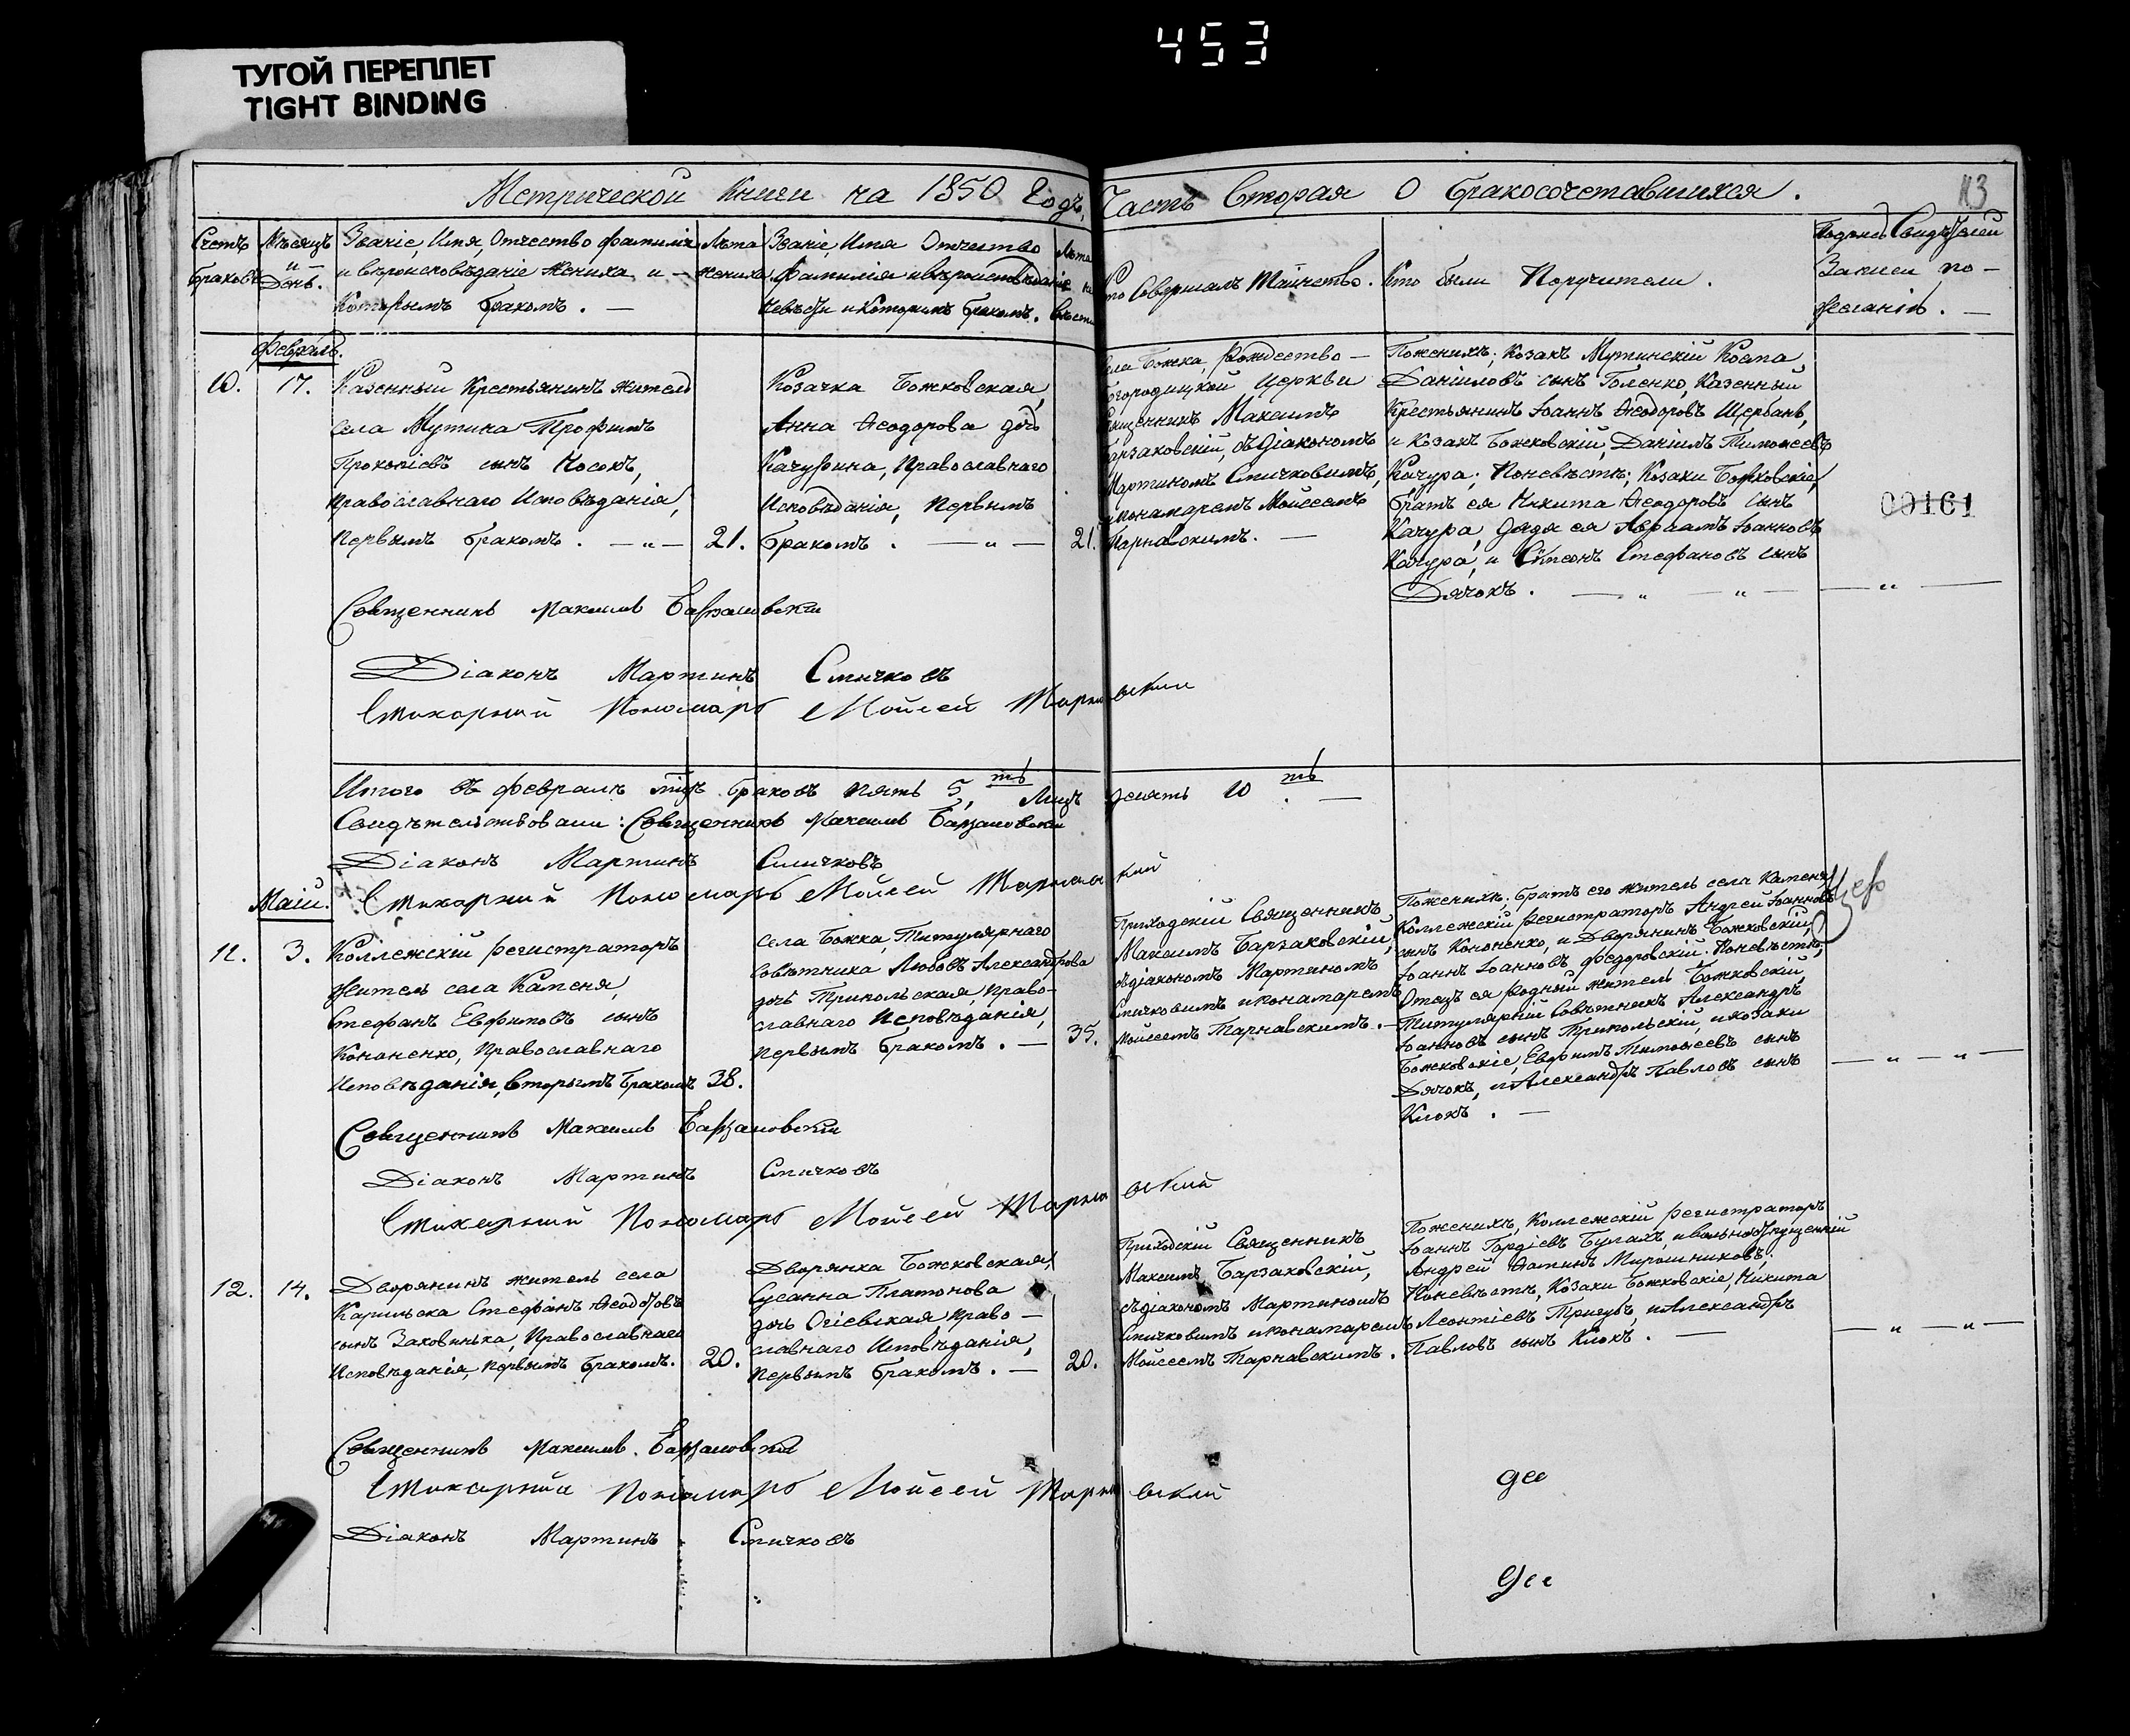 453
ТУГОЙ ПЕРЕПЛЕТ
TIGHT BINDING
Метрической Книги на 1850 Годъ, Часть Вторая О бракосочетавшихся.
113
Счетъ браковъ
Мѣсяцъ и День.
Званіе, Имя, Отчество фамилія
и вѣроисповѣданіе Жениха и
Которымъ бракомъ. —
Лѣта жениха
Званіе, Имя Отчество
Фамилія и вѣроисповѣданіе
Невѣсты и Которымъ бракомъ.
Лѣта
Совершалъ Таинство.
Кто были Поручители.
Свидѣтелей
Записи по —
желанію. —
Февраль.
10. 17.
Казенный Крестьянинъ житель
села Мутина Трофимъ
Прокопіевъ сынъ Носокъ,
Православнаго Исповѣданія,
Первымъ бракомъ. — „ — 21.
Козачка Божковская,
Анна Феодорова дочь
Качурина, Православнаго
Исповѣданія, Первымъ
бракомъ. — „ — 21.
Села Божка, Рождество —
Богородицкой Церкви
Священникъ Максимъ
Барзаковскій, съ діакономъ
Мартиномъ Спичковимъ,
и понамаремъ Мойсеемъ
Тарнавскимъ. —
Поженихѣ; Козакъ Мутинскій Косма
Даніиловъ сынъ Голенко, Казенный
Крестьянинъ Іоаннъ Феодоровъ Щербань,
и Козакъ Божковскій, Даніилъ Тимофеевъ
Качура; Поневѣстѣ; Козаки Божковскіе,
братъ ея Никита Феодоровъ сынъ
Качура, дядя ея Авраамъ Іоанновъ
Качура, и Сѵмеонъ Стефановъ сынъ
Дячокъ. — „ — „ —
00161
— „ —
Священникъ Максимъ Барзаковскій
Діаконъ Мартинъ Спичковъ
Стихарный Пономарь Мойсей Тарнавский
Итого въ Февралѣ браковъ пять 5, ть Лицъ десять 10 ть. —
Свидѣтельствовали: Священникъ Максимъ Барзаковскій
Діаконъ Мартинъ Спичковъ
Стихарный Пономарь Мойсей Тарнавский
Маій.
11. 3.
Коллежскій Регистраторъ
Житель села Каменя,
Стефанъ Евфимовъ сынъ
Кононенко, Православнаго
Исповѣданія, Вторымъ бракомъ 38.
села Божка, Титулярнаго
Совѣтника Любовь Александрова
дочь Трипольская, право-
славнаго Исповѣданія,
Первымъ бракомъ. — 35.
Приходскій Священникъ
Максимъ Барзаковскій,
съ діакономъ Мартиномъ
Спичковимъ и понамаремъ
Мойсеемъ Тарнавскимъ. —
Поженихѣ; братъ его житель села Каменя
Коллежскій Регистраторъ Андрей Іоанновъ
сынъ Кононенко, и Дворянинъ Божковскій,
Іоаннъ Іоанновъ Федоровскій. Поневѣстѣ;
Отецъ ея Родный житель Божковскій,
Титулярный Совѣтникъ Александръ
Іоанновъ сынъ Трипольскій, и козаки
Божковскіе, Евфимъ Тимофеевъ сынъ
Дячокъ, и Александръ Павловъ сынъ
Клокъ. —
— „ — „ —
Священникъ Максимъ Барзаковскій
Діаконъ Мартинъ Спичковъ
Стихарный Пономарь Мойсей Тарнавский
12. 14.
Дворянинъ житель села
Карильска Стефанъ Феодоровъ
сынъ Заковинька, Православнаго
Исповѣданія, Первымъ бракомъ. 20.
Дворянка Божковская,
Сусанна Платонова
дочь Огіевская, право —
славнаго Исповѣданія,
Первымъ бракомъ. — 20.
Приходскій Священникъ
Максимъ Барзаковскій,
съ діакономъ Мартиномъ
Спичковимъ и понамаремъ
Мойсеемъ Тарнавскимъ.
Поженихѣ, Коллежскій Регистраторъ
Іоаннъ Гордіевъ Булахъ, и вольноотпущенній
Андрей Фоминъ Мирошниковъ;
Поневѣстѣ, Козаки Божковскіе, Никита
Леонтіевъ Тригубъ, и Александръ
Павловъ сынъ Клокъ. —
— „ — „ —
Священникъ Максимъ Барзаковскій
Стихарный Пономарь Мойсей Тарнавский
Діаконъ Мартинъ Спичковъ